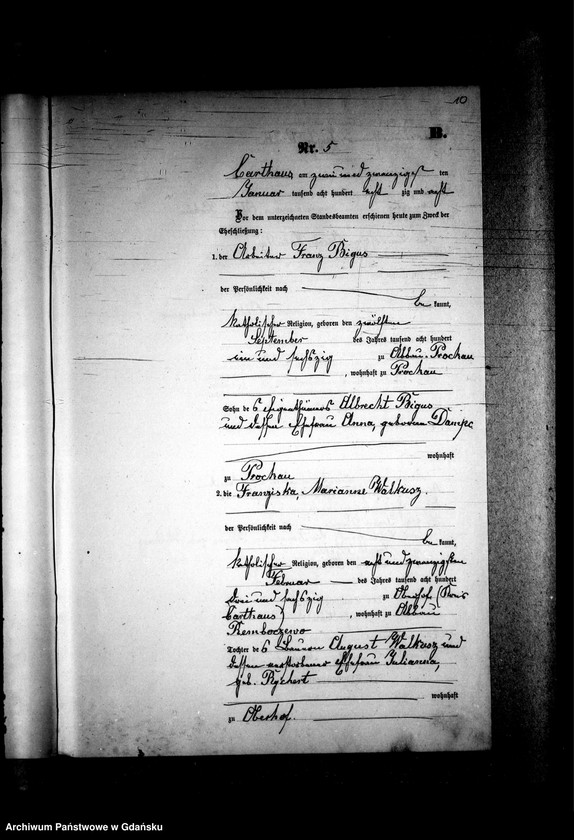 10
B.
Nr. 5
Carthaus am zwei und zwanzigsten
Januar tausend acht hundert acht zig und acht
Vor dem unterzeichneten Standesbeamten erschienen heute zum Zweck der
Eheschließung:
1. der Arbeiter Franz Bigus
der Persönlichkeit nach
be kannt,
katholischer Religion, geboren den zwölften
September des Jahres tausend acht hundert
ein und sechszig zu Abbau Prochau
, wohnhaft zu Prochau
Sohn des Eigenthümers Albrecht Bigus
und dessen Ehefrau Anna, geborene
wohnhaft
zu Prochau
2. die Franziska, Marianne Walkusz
der Persönlichkeit nach
be kannt,
katholischer Religion, geboren den acht und zwanzigsten
Februar des Jahres tausend acht hundert
drei und sechszig zu Oberhof (Kreis
Carthaus) , wohnhaft zu Abbau
Remboczewo
Tochter des Bauern August Walkusz und
dessen verstorbener Ehefrau Julianna,
geb. Rychert
wohnhaft
zu Oberhof.
Archiwum Państwowe w Gdańsku